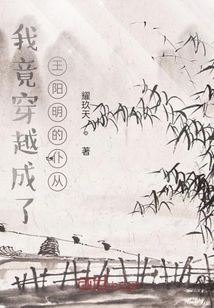 我竟穿越成了
王阳明的仆从
耀玖天
著